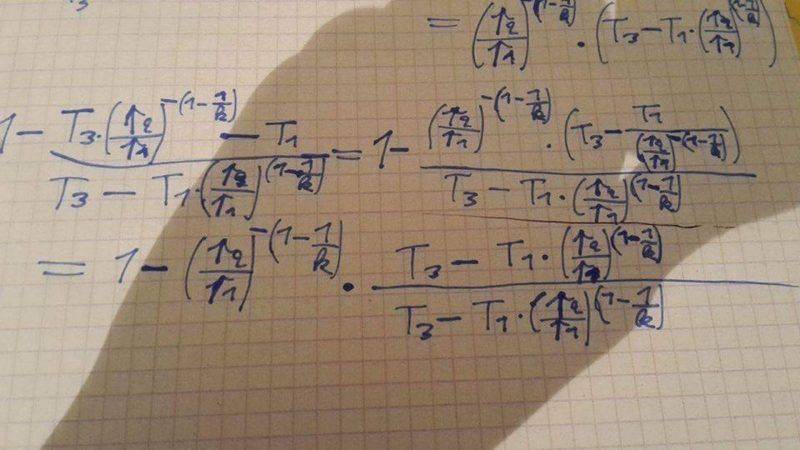 = (p₂/p₁)^-(1-1/k) · (T₃ - T₁ · (p₂/p₁)^(1-1/k))
1 - (T₃ · (p₂/p₁)^-(1-1/k) - T₁)/(T₃ - T₁ · (p₂/p₁)^(1-1/k)) = 1 - ((p₂/p₁)^-(1-1/k) · (T₃ - T₁/(p₂/p₁)^-(1-1/k)))/(T₃ - T₁ · (p₂/p₁)^(1-1/k))
= 1 - (p₂/p₁)^-(1-1/k) · (T₃ - T₁ · (p₂/p₁)^(1-1/k))/(T₃ - T₁ · (p₂/p₁)^(1-1/k))